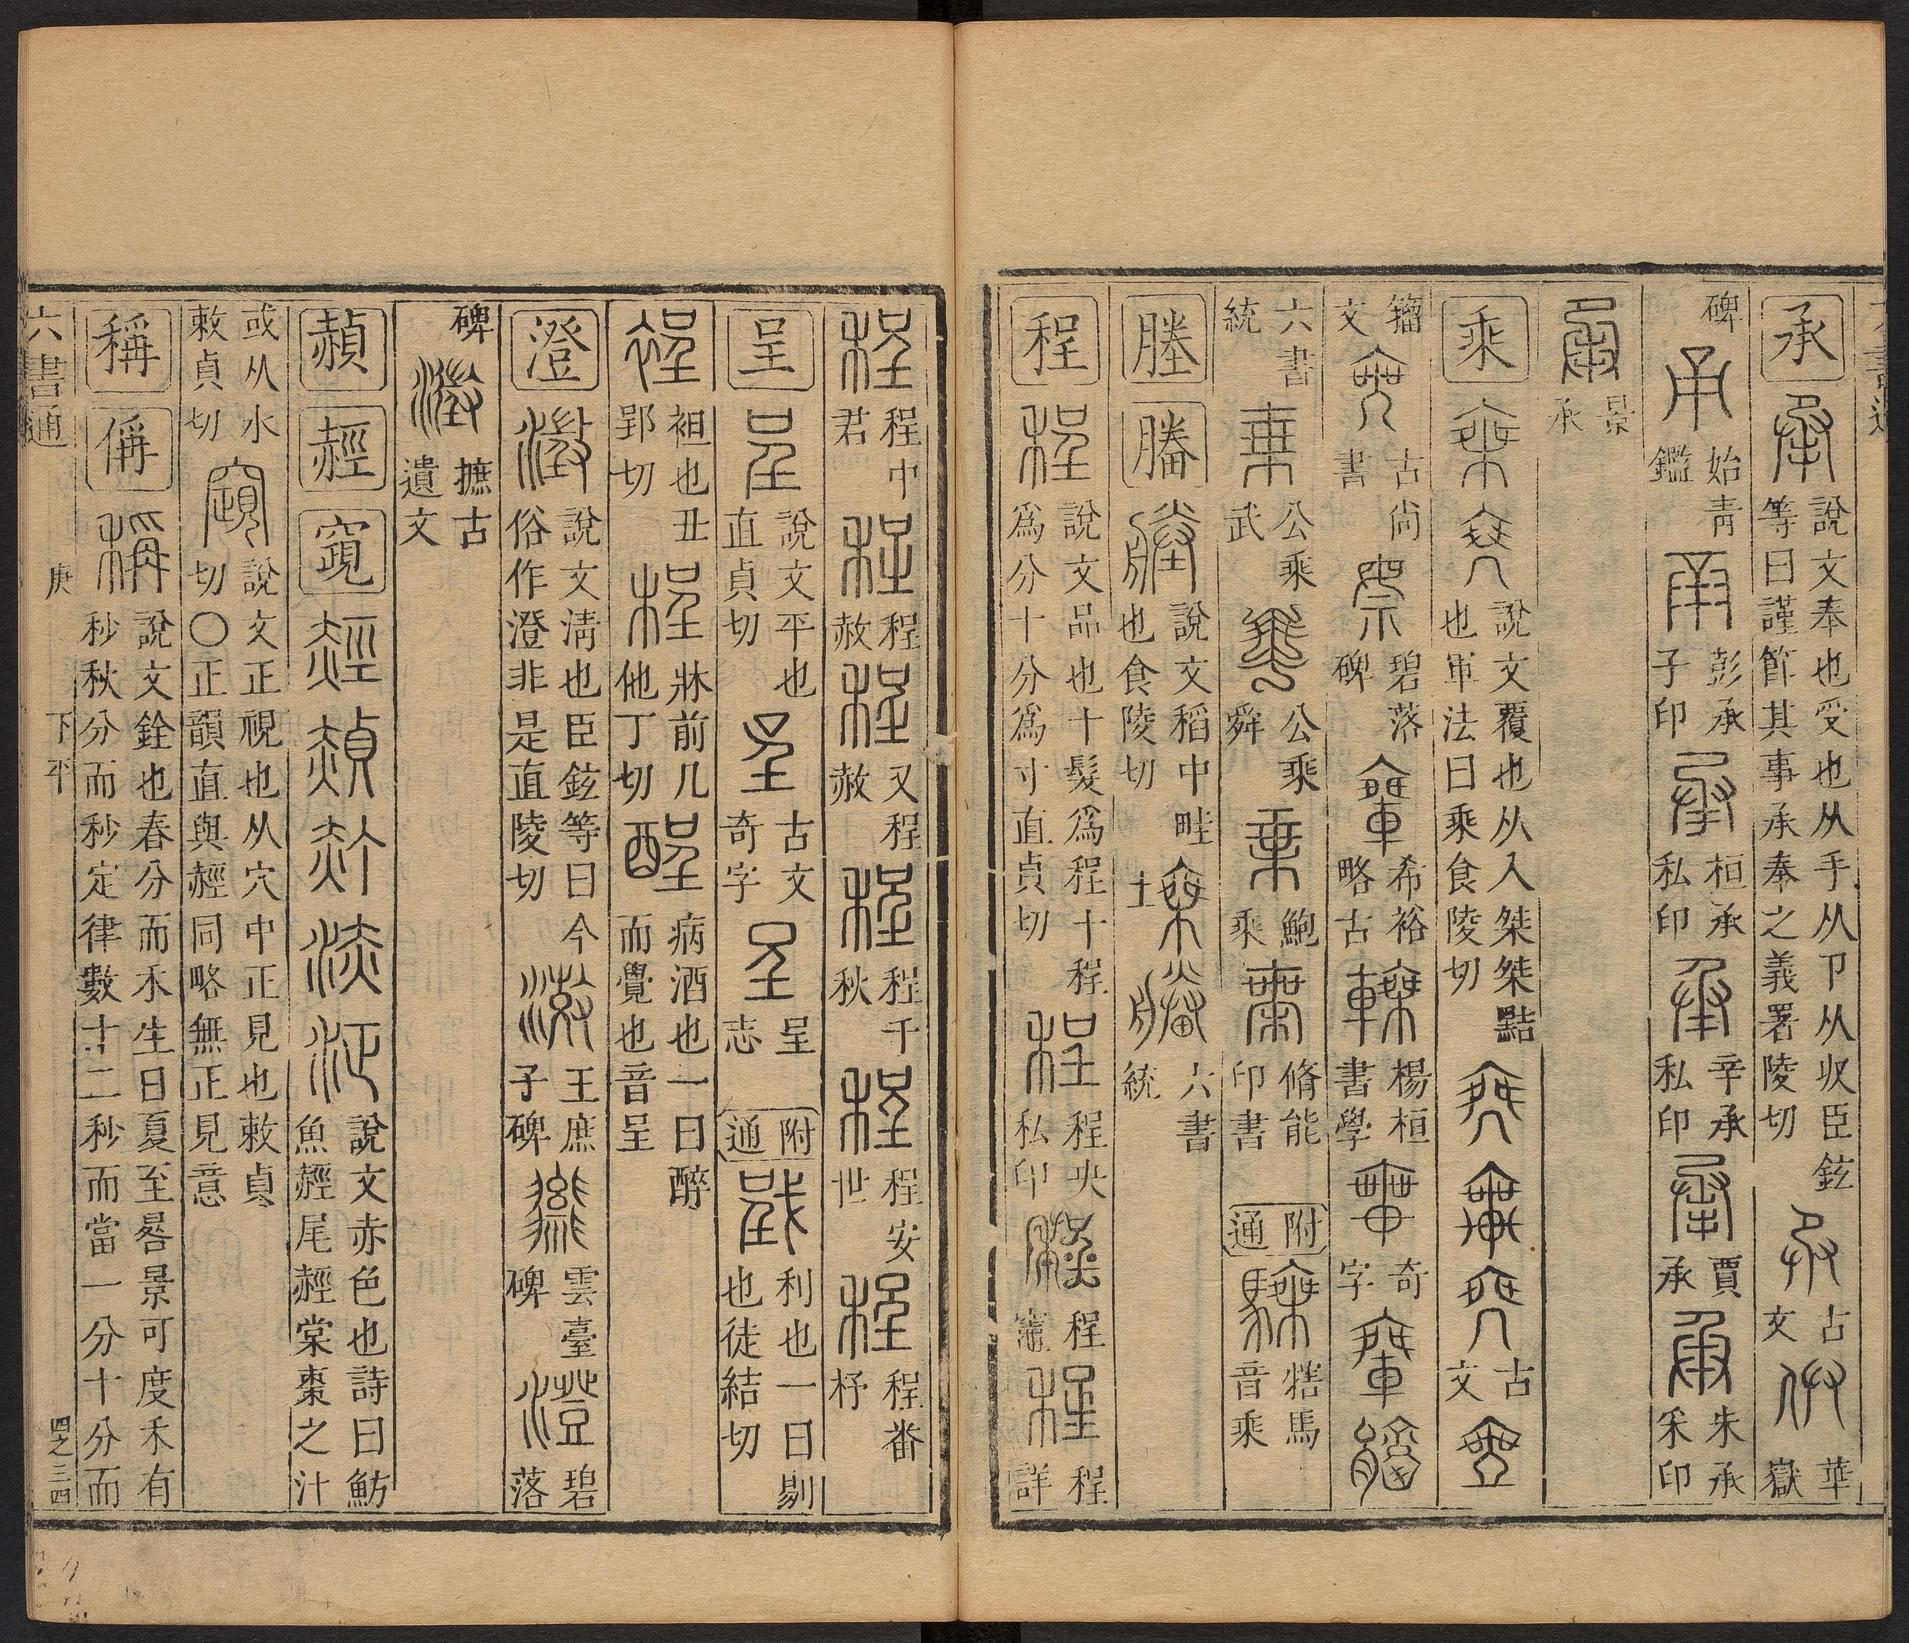 承 說文奉也受也从手从卪从収臣鉉
等曰謹節其事承奉之義署陵切
古文
華嶽
碑
始青鑑
彭承子印
桓承私印
辛承私印
賈承
朱承采印
景承
乘 說文覆也从入桀桀黠
也軍法曰乘食陵切
古文
籀文
古尚書
碧落碑
希裕略古
楊桓書學
奇字
六書統
公乘武
公乘舜
鮑乘
脩能印書
附通
犗馬音乘
塍 䐶 說文稻中畦
也食陵切
六書統
程 說文品也十髮爲程十程
爲分十分爲寸直貞切
程央私印
程
程詳
程中君
程赦
又程赦
程千秋
程安世
程番杍
呈 說文平也
直貞切
古文奇字
呈志
附通
利也一曰剔
也徒結切
袒也丑郢切
牀前几他丁切
病酒也一曰醉
而覺也音呈
澄 說文淸也臣鉉等曰今
俗作澄非是直陵切
王庶子碑
雲臺碑
碧落
碑
摭古遺文
赬 䞓 竀
說文赤色也詩曰魴
魚䞓尾䞓棠棗之汁
或从水敕貞切
說文正視也从穴中正見也敕貞
切〇正韻直與䞓同略無正見意
稱 偁 說文銓也春分而禾生日夏至晷景可度禾有
秒秋分而秒定律數十二秒而當一分十分而
六書通
庚
下平
四之三四